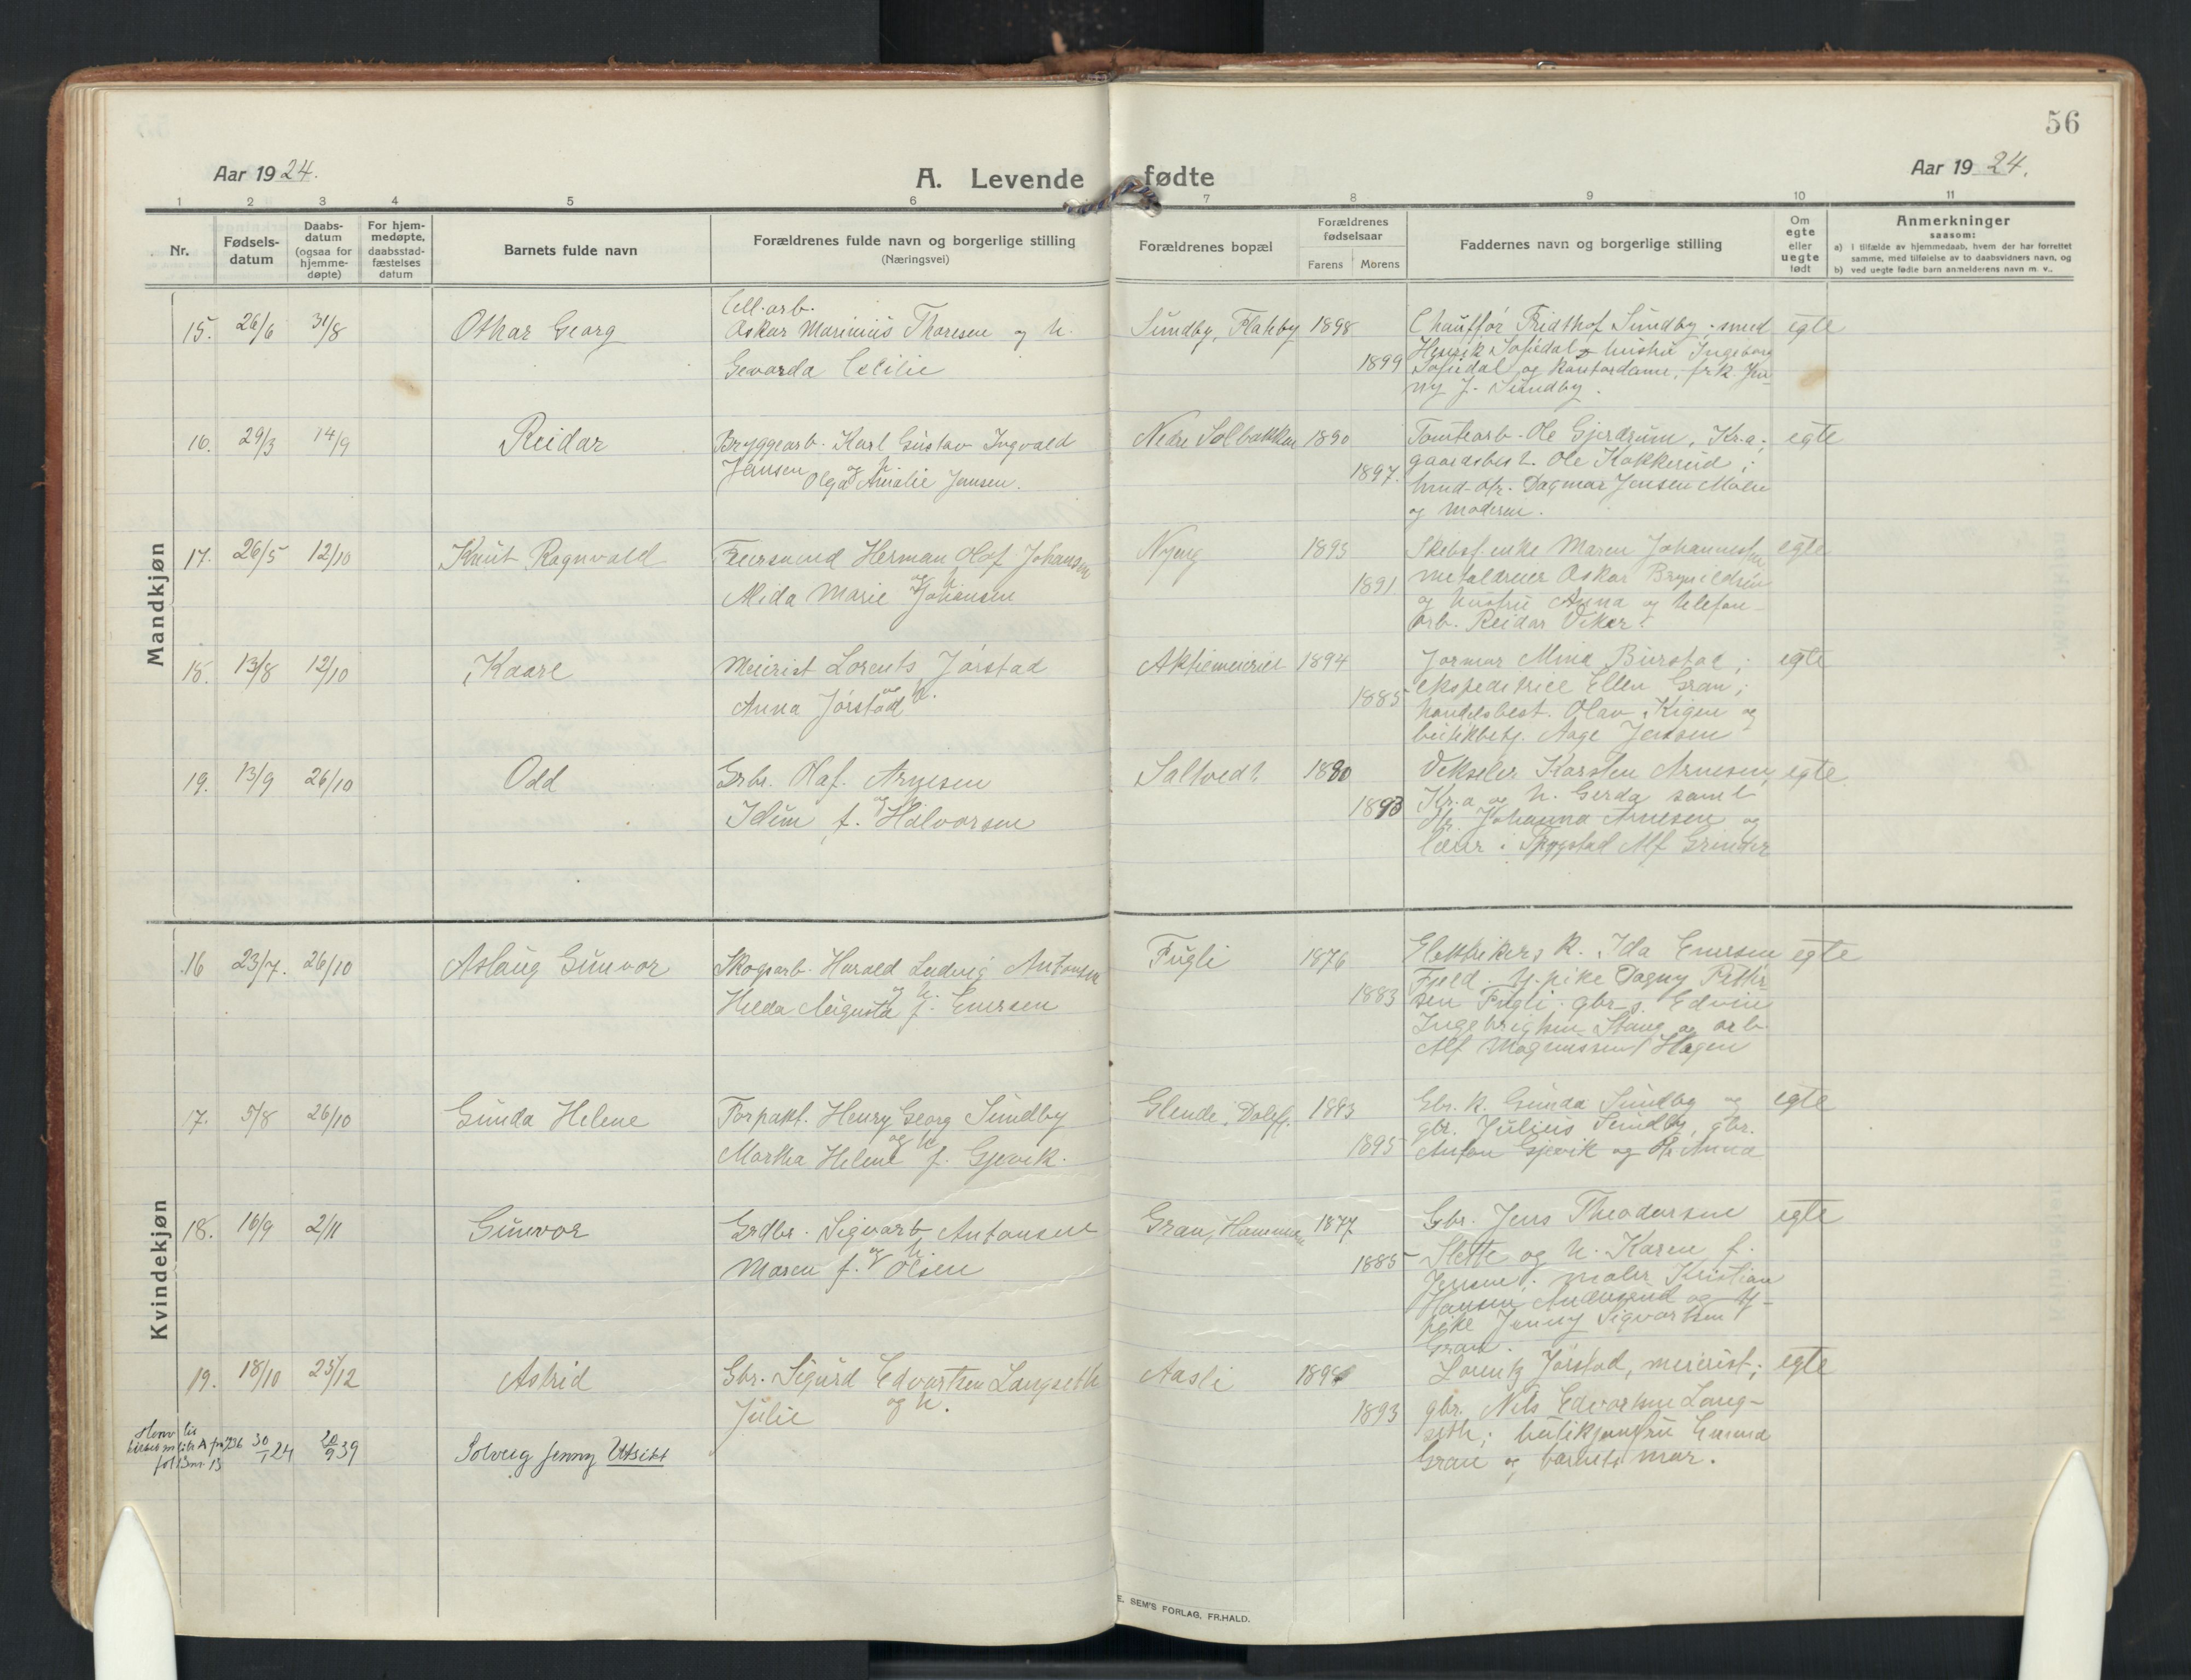 56
Aar 1924.
A. Levende fødte
Aar 1924.
1 2 3 4 5 6 7 8 9 10 11
Nr.
Fødsels-
datum
Daabs-
datum
(ogsaa for
hjemme-
døpte)
For hjem-
medøpte,
daabsstad-
fæstelses
datum
Barnets fulde navn
Forældrenes fulde navn og borgerlige stilling
(Næringsvei)
Forældrenes bopæl
Forældrenes
fødselsaar
Farens Morens
Faddernes navn og borgerlige stilling
Om
egte
eller
uegte
født
Anmerkninger
saasom:
a) i tilfælde av hjemmedaab, hvem der har forrettet
samme, med tilføielse av to daabsvidners navn, og
b) ved uegte fødte barn anmelderens navn m. v..
Mandkjøn
15. 26/6 31/8 Othar Georg
Cell.arb.
Oskar Marinius Thoresen og h.
Gevarda Cecilie
Sundby, Flateby 1898
1899
Chauffør Fridthof Sundby; smed
Henrik Sofiedal og hustru Ingeborg
Sofiedal og kontordame, frk. Jen-
ny J. Sundby.
egte
16. 29/3 14/9 Reidar
Bryggearb. Karl Gustav Ingvald
Jensen og h.
Olga Amalie Jensen.
Nedre Solbakken 1890
1897.
Tomtearb. Ole Gjerdrum, Kr.a;
gaardsbest. Ole Kokkerud;
hmd-dtr. Dagmar Jensen Moen
og moderen.
egte
17. 26/5 12/10 Knut Ragnvald
Herman Olof Johansen
og h.
Alida Marie Johansen
Nyeng 1893
1891
Skibsf.enke Maren Johannessen
metaldreier Oskar Brynildsen
og hustru Anna og telefon-
arb. Reidar Viker.
egte
18. 13/8 12/10 Kaare
Meierist Lorents Jørstad
og h.
Anna Jørstad
Aktiemeieriet 1894
1885
Jormor Mina Burstad;
ekspeditrice Ellen Gran;
handelsbest. Olav Kigen og
butikbetj. Aage Jensen
egte
19. 13/9 26/10 Odd
Grbr. Olaf Arnesen
og h.
Idun f. Halvorsen
Saltvedt 1880
1893
Veksler Karsten Arnesen,
Kr.a og h. Gerda samt
Johanna Arnesen og
lærer i Trøgstad Alf Grinder
egte
Kvindekjøn
16 23/7. 26/10 Aslaug Gunvor
Skogsarb. Harald Ludvig Antonsen
og h.
Hilda Augusta f. Enersen
Fugli 1876
1883
Elektrikers k. Ida Enersen
Fjeld. U.pike Dagny Petter-
sen Fugli. gbr.s. Edvin
Ingebrigtsen Stang og arb.
Alf Magnussen Hagen
egte
17. 5/8 26/10 Gunda Helene
Forpakt. Henry Georg Sundby
og h.
Martha Helene f. Gjevik.
Glende, Dalefj. 1893
1895
Gbr. k. Gunda Sundby og
gbr. Julius Sundby, gbr.
Anton Gjevik og Anna
egte
18. 16/9 2/11 Gunvor
Grdbr. Sigvart Antonsen
og h.
Maren f. Olsen
Gran, Hammeren 1877
1885
Gbr. Jens Theodorsen
Slette og h. Karen f.
Jensen; maler Kristian
Hansen og U-
pike Jenny Sigvartsen
Gran.
egte
19. 18/10 25/12 Astrid
Gbr. Sigurd Edvartsen Langseth
og h.
Julie
Aasli 1894
1893
Lorentz Jørstad, meierist;
gbr. Nils Edvartsen Lang-
seth; butikjomfru Emma
Gran og barnets mor.
egte
fol 13 nr. 13
30/1 24 20/9 39 Solveig Jenny Utsikt
E. SEM'S FORLAG, FR.HALD.